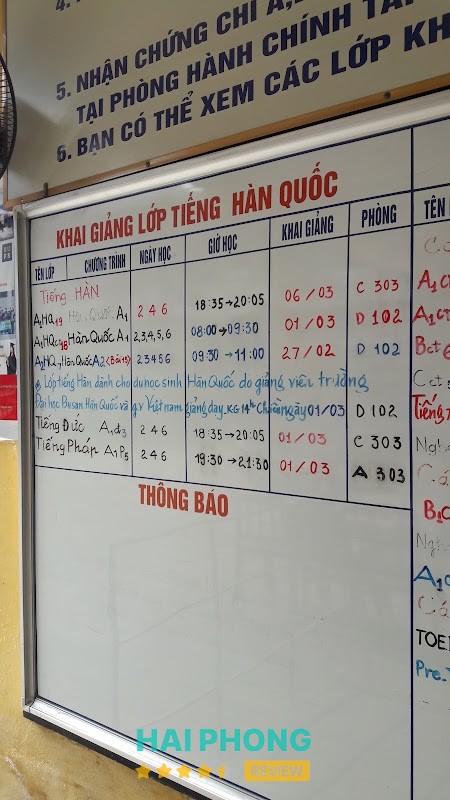 4.
5. NHẬN CHỨNG CHỈ A,
TẠI PHÒNG HÀNH CHÍNH TẦ
6. BẠN CÓ THỂ XEM CÁC LỚP KH
KHAI GIẢNG LỚP TIẾNG HÀN QUỐC
TÊN LỚP CHƯƠNG TRÌNH NGÀY HỌC GIỜ HỌC KHAI GIẢNG PHÒNG
Tiếng HÀN
A1HQ19 Hàn Quốc A1 2 4 6 18:35→20:05 06/03 C 303
A1HQC18 Hàn Quốc A1 2,3,4,5,6 08:00→09:30 01/03 D 102
Hàn Quốc A2 2 3 4 5 6 09:30→11:00 27/02 D 102
Lớp tiếng Hàn dành cho du học sinh Hàn Quốc do giảng viên trường
Đại học Busan Hàn Quốc và gv Việt nam giảng dạy. KG 14h chiều ngày 01/03 D 102
Tiếng Đức A1đ3 2 4 6 18:35→20:05 01/03 C 303
Tiếng Pháp A1P5 2 4 6 19:30→21:30 01/03 A 303
THÔNG BÁO
TÊN
A1C
A1CT
Bct
Tiếng
Cá
B1C
A1C
TOE
Pre-T
HAI PHONG
REVIEW